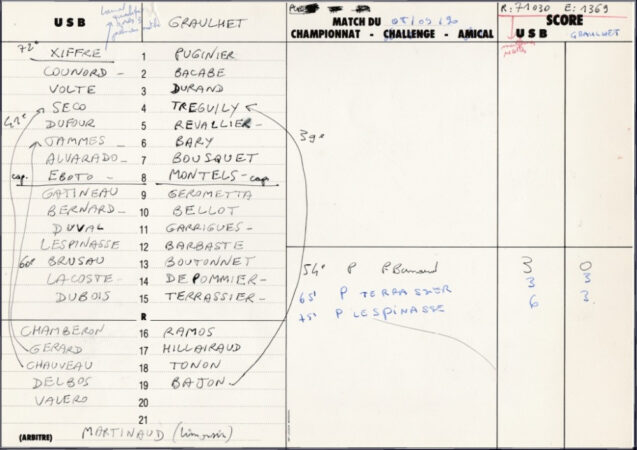 U S B GRAULHET
MATCH DU 05/05/90
CHAMPIONNAT - CHALLENGE - AMICAL
R: 71030 E: 1369
SCORE
U S B GRAULHET
72e
XIFFRE 1 PUGINIER
COUNORD - 2 BACABE
VOLTE 3 DURAND
SECO 4 TREGUILY
DUFOUR 5 REVALLIER -
JAMMES - 6 BARY
ALVARADO - 7 BOUSQUET
cap. EBOTO - 8 MONTELS - cap.
GATINEAU 9 GEROMETTA
BERNARD - 10 BELLOT
DUVAL 11 GARRIGUES -
LESPINASSE 12 BARBASTE
60e BRUSAU 13 BOUTONNET
LACOSTE - 14 DEPOMMIER -
DUBOIS 15 TERRASSIER -
R
CHAMBERON 16 RAMOS
GERARD 17 HILLAIRAUD
CHAUVEAU 18 TONON
DELBOS 19 BAJON
VALERO 20
21
(ARBITRE) MARTINAUD (Limousin)
39e
54e P P. Bernard 3 0
65e P TERRASSIER 3 3
75e P LESPINASSE 6 3